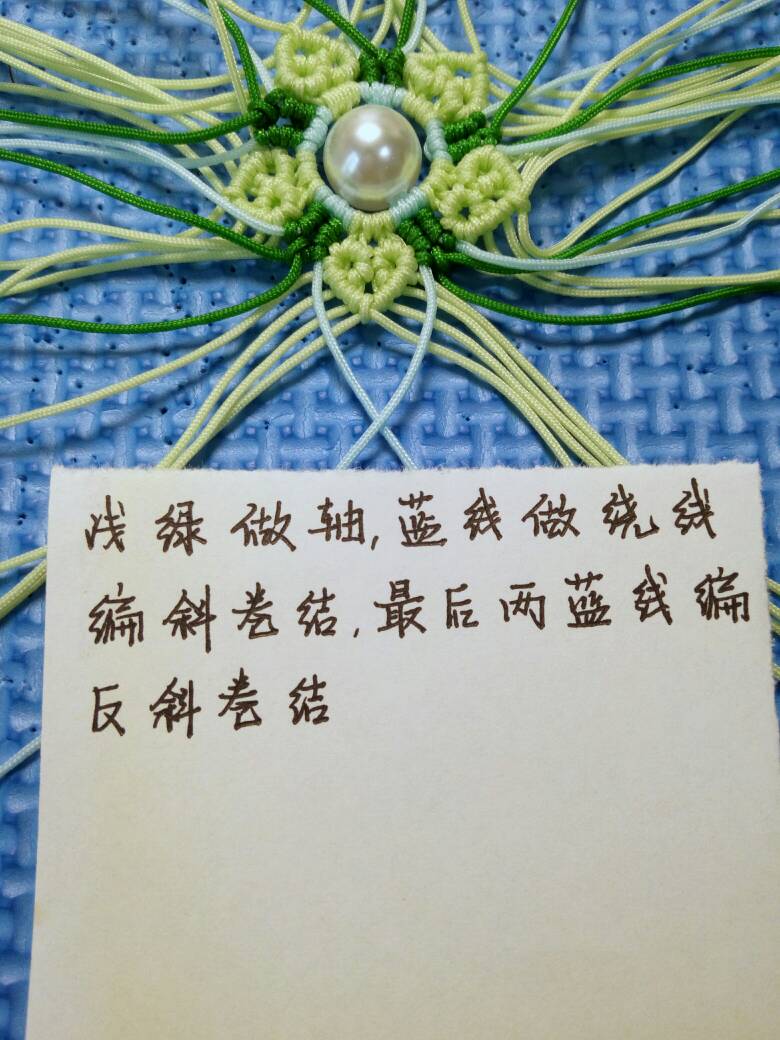 浅绿做轴,蓝线做绕线
编斜卷结,最后两蓝线编
反斜卷结